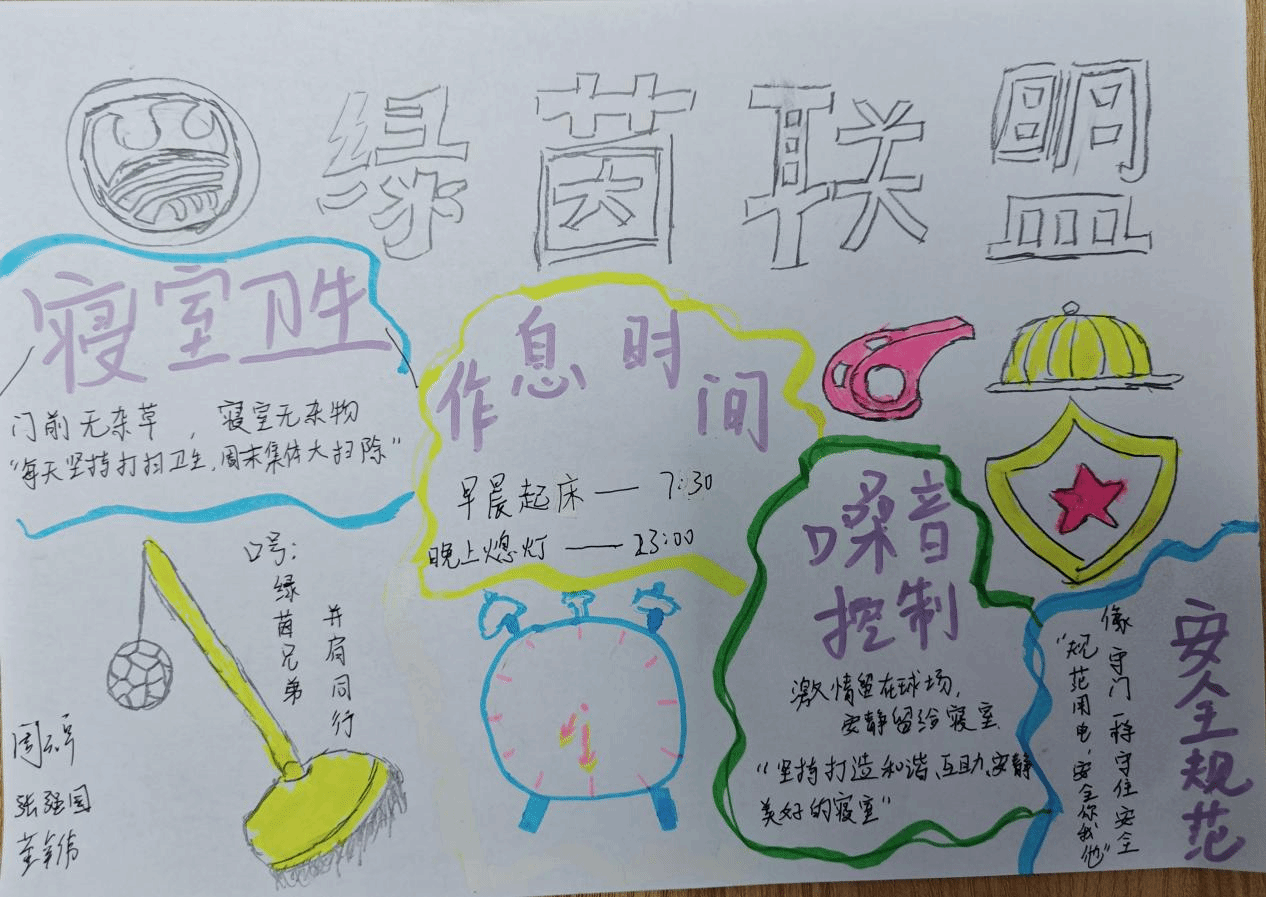 绿茵联盟
寝室卫生
门前无杂草，寝室无杂物
“每天坚持打扫卫生，周末集体大扫除”
作息时间
早晨起床 — 7:30
晚上熄灯 — 23:00
嗓音
控制
激情留在球场，
安静留给寝室
“坚持打造和谐、互助、安静
美好的寝室”
安全规范
像守门一样守住安全
“规范用电，安全你我他”
口号：
绿茵兄弟
并肩同行
张强国